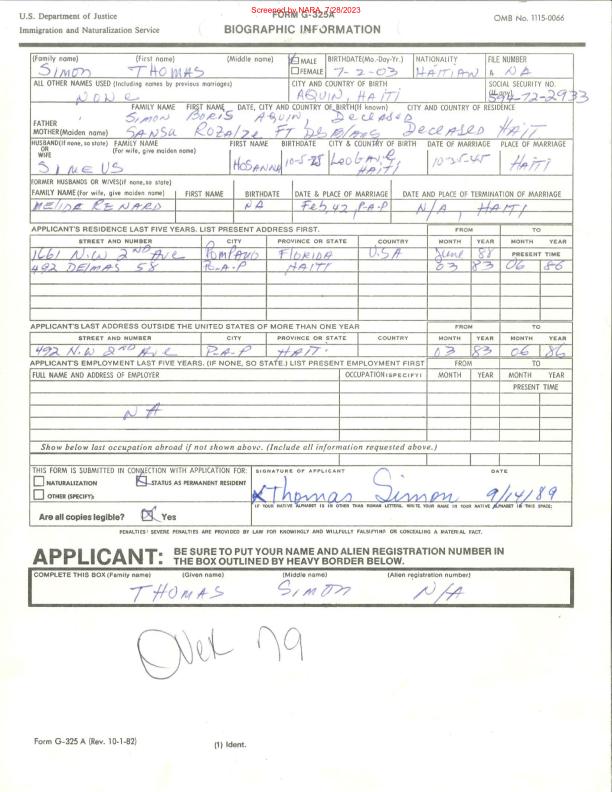 Screened by NARA, 7/28/2023
U.S. Department of Justice FORM G-325A OMB No. 1115-0066
Immigration and Naturalization Service BIOGRAPHIC INFORMATION
(Family name) (First name) (Middle name) MALE BIRTHDATE(Mo.-Day-Yr.) NATIONALITY FILE NUMBER
SIMON THOMAS FEMALE 7-2-03 HAITIAN A NA
ALL OTHER NAMES USED (Including names by previous marriages) CITY AND COUNTRY OF BIRTH SOCIAL SECURITY NO.
NONE AQUIN, HAITI (If any) 594-72-2933
FAMILY NAME FIRST NAME DATE, CITY AND COUNTRY OF BIRTH(If known) CITY AND COUNTRY OF RESIDENCE
FATHER SIMON BORIS AQUIN, Deceased
MOTHER(Maiden name) SANSU Deceased HAITI
HUSBAND(If none, so state) FAMILY NAME FIRST NAME BIRTHDATE CITY & COUNTRY OF BIRTH DATE OF MARRIAGE PLACE OF MARRIAGE
OR (For wife, give maiden name)
WIFE
SIMEUS HOSANNA HAITI HAITI
FORMER HUSBANDS OR WIVES(if none,so state)
FAMILY NAME(For wife, give maiden name) FIRST NAME BIRTHDATE DATE & PLACE OF MARRIAGE DATE AND PLACE OF TERMINATION OF MARRIAGE
RENARD NA Feb, 42, P-A-P N/A, HAITI
APPLICANT'S RESIDENCE LAST FIVE YEARS. LIST PRESENT ADDRESS FIRST. FROM TO
STREET AND NUMBER CITY PROVINCE OR STATE COUNTRY MONTH YEAR MONTH YEAR
1661 N.W 2ND Ave POMPANO FLORIDA U.S.A June 88 PRESENT TIME
492 DElMAS 58 P-A-P HAITI 03 83 06 86
APPLICANT'S LAST ADDRESS OUTSIDE THE UNITED STATES OF MORE THAN ONE YEAR FROM TO
STREET AND NUMBER CITY PROVINCE OR STATE COUNTRY MONTH YEAR MONTH YEAR
492 N.W 2ND Ave P-A-P HAITI 03 83 06 86
APPLICANT'S EMPLOYMENT LAST FIVE YEARS. (IF NONE, SO STATE.) LIST PRESENT EMPLOYMENT FIRST FROM TO
FULL NAME AND ADDRESS OF EMPLOYER OCCUPATION(SPECIFY) MONTH YEAR MONTH YEAR
PRESENT TIME
N A
Show below last occupation abroad if not shown above. (Include all information requested above.)
THIS FORM IS SUBMITTED IN CONNECTION WITH APPLICATION FOR: SIGNATURE OF APPLICANT DATE
NATURALIZATION STATUS AS PERMANENT RESIDENT
OTHER (SPECIFY): Thomas Simon 9/14/89
IF YOUR NATIVE ALPHABET IS IN OTHER THAN ROMAN LETTERS, WRITE YOUR NAME IN YOUR NATIVE ALPHABET IN THIS SPACE:
Are all copies legible? Yes
PENALTIES: SEVERE PENALTIES ARE PROVIDED BY LAW FOR KNOWINGLY AND WILLFULLY FALSIFYING OR CONCEALING A MATERIAL FACT.
APPLICANT: BE SURE TO PUT YOUR NAME AND ALIEN REGISTRATION NUMBER IN
THE BOX OUTLINED BY HEAVY BORDER BELOW.
COMPLETE THIS BOX (Family name) (Given name) (Middle name) (Alien registration number)
THOMAS SIMON N/A
Over 79
Form G-325 A (Rev. 10-1-82) (1) Ident.